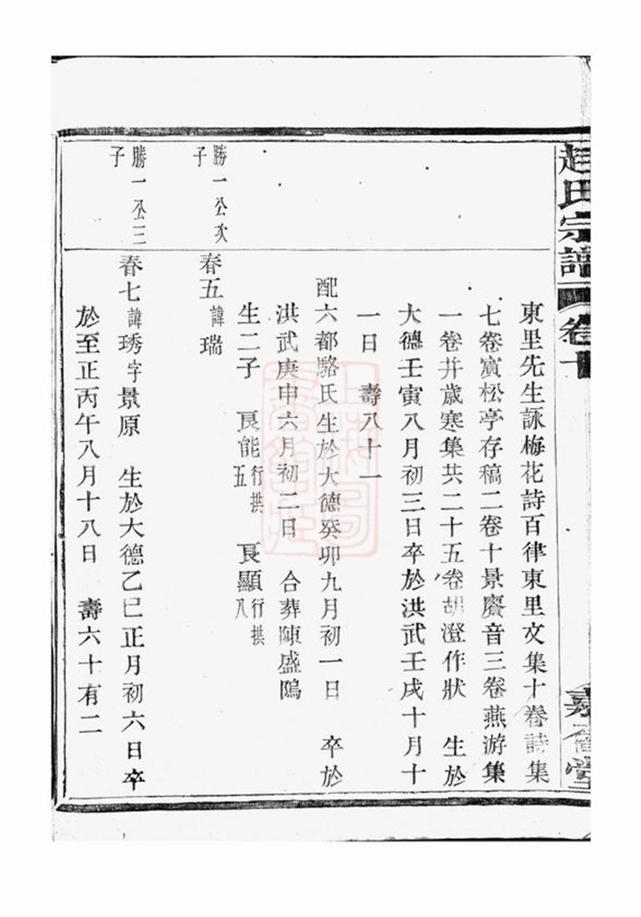 趙氏宗譜 卷十
東里先生詠梅花詩百律東里文集十卷詩集
七卷寅松亭存稿二卷十景賡音三卷燕游集
一卷并歲寒集共二十五卷胡澄作狀 生於
大德壬寅八月初三日卒於洪武壬戌十月十
一日 壽八十一
配六都駱氏生於大德癸卯九月初一日 卒於
洪武庚申六月初二日 合葬陳盛隖
生二子 良能行拱五 良顯行拱八
勝一公次子
春五諱瑞
勝一公三子
春七諱琇字景原 生於大德乙巳正月初六日卒
於至正丙午八月十八日 壽六十有二